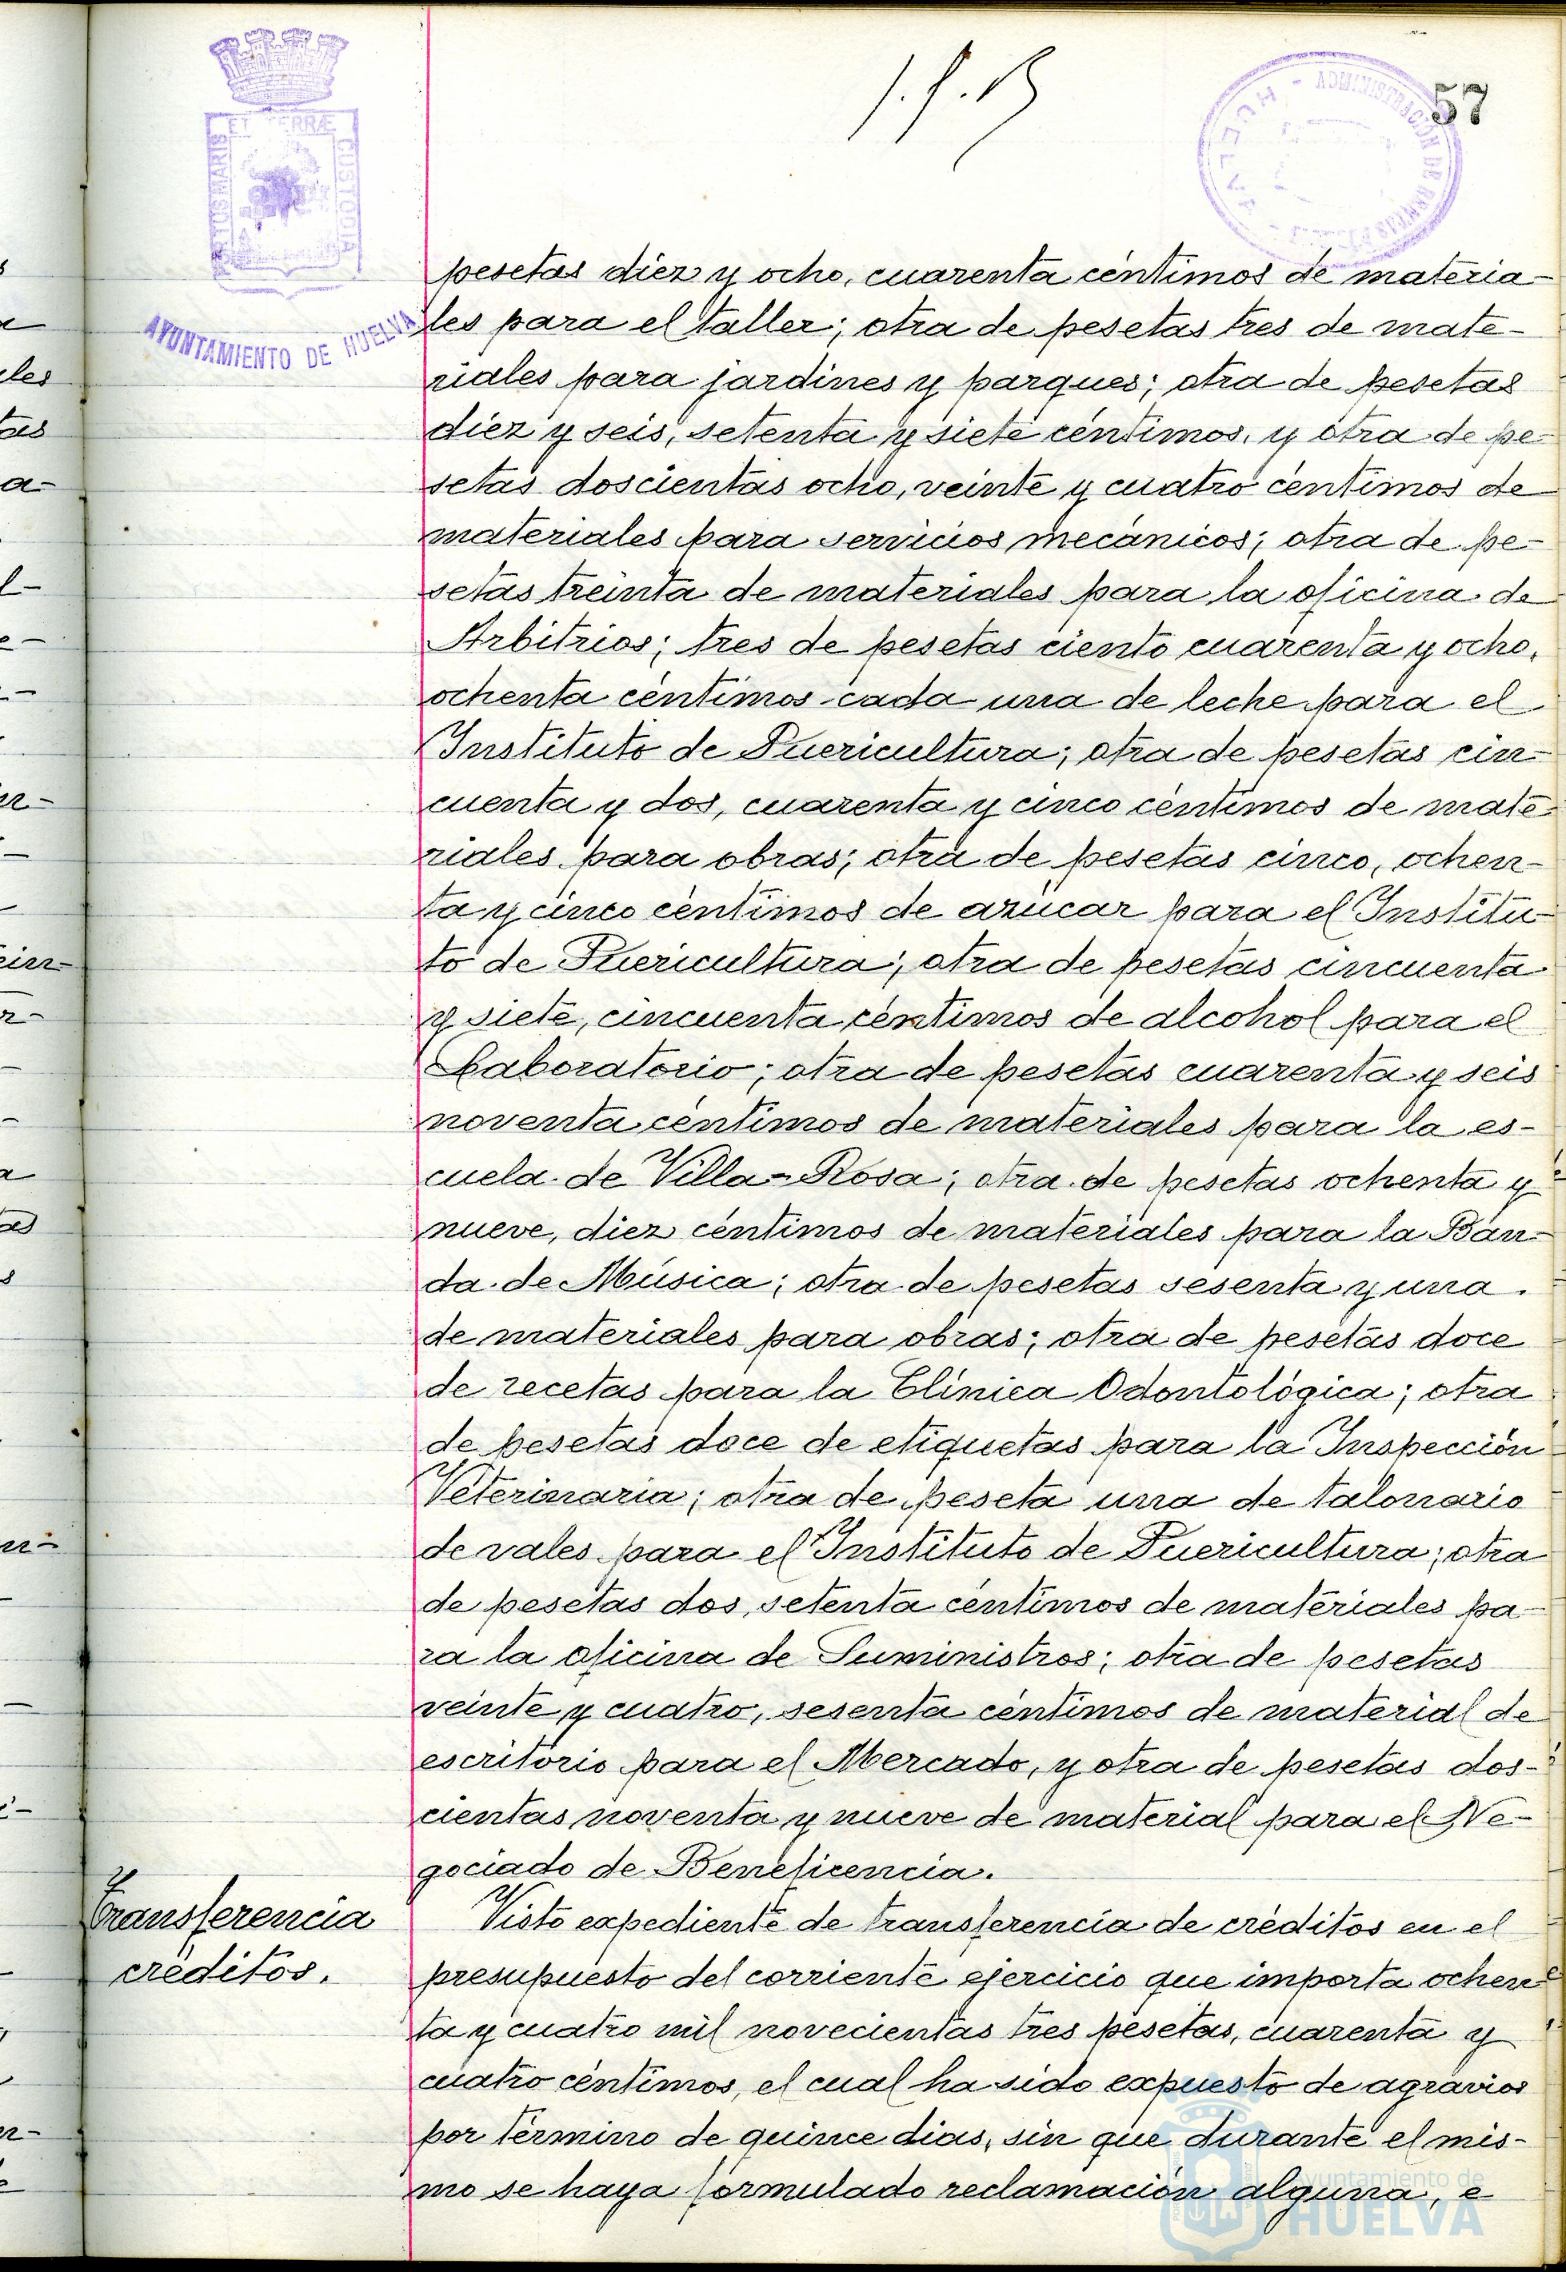 57
ET TERRÆ
PORTUS MARIS
CUSTODIA
AYUNTAMIENTO DE HUELVA
ADMINISTRACIÓN DE RENTAS
HUELVA
pesetas diez y ocho, cuarenta céntimos de materia-
les para el taller; otra de pesetas tres de mate-
riales para jardines y parques; otra de pesetas
diez y seis, setenta y siete céntimos, y otra de pe-
setas doscientas ocho, veinte y cuatro céntimos de
materiales para servicios mecánicos; otra de pe-
setas treinta de materiales para la oficina de
Arbitrios; tres de pesetas ciento cuarenta y ocho,
ochenta céntimos cada una de leche para el
Instituto de Puericultura; otra de pesetas cin-
cuenta y dos, cuarenta y cinco céntimos de mate-
riales para obras; otra de pesetas cinco, ochen-
ta y cinco céntimos de azúcar para el Institu-
to de Puericultura; otra de pesetas cincuenta
y siete, cincuenta céntimos de alcohol para el
Laboratorio; otra de pesetas cuarenta y seis
noventa céntimos de materiales para la es-
cuela de Villa-Rosa; otra de pesetas ochenta y
nueve, diez céntimos de materiales para la Ban-
da de Música; otra de pesetas sesenta y una
de materiales para obras; otra de pesetas doce
de recetas para la Clínica Odontológica; otra
de pesetas doce de etiquetas para la Inspección
Veterinaria; otra de peseta una de talonario
de vales para el Instituto de Puericultura; otra
de pesetas dos, setenta céntimos de materiales pa-
ra la oficina de Suministros; otra de pesetas
veinte y cuatro, sesenta céntimos de material de
escritorio para el Mercado, y otra de pesetas dos-
cientas noventa y nueve de material para el Ne-
gociado de Beneficencia.
Transferencia
créditos.
Visto expediente de transferencia de créditos en el
presupuesto del corriente ejercicio que importa ochen-
ta y cuatro mil novecientas tres pesetas, cuarenta y
cuatro céntimos, el cual ha sido expuesto de agravios
por término de quince dias, sin que durante el mis-
mo se haya formulado reclamación alguna, e
Ayuntamiento de
HUELVA